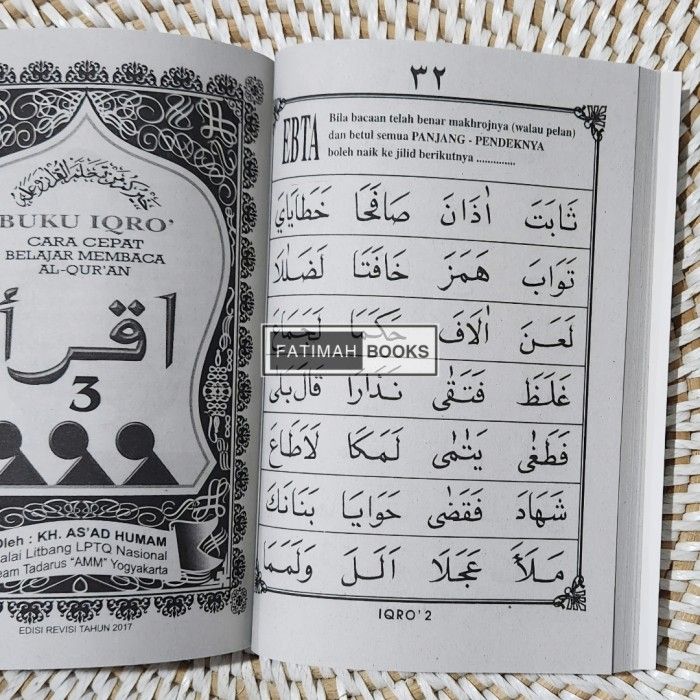 BUKU IQRO'
CARA CEPAT
BELAJAR MEMBACA
AL-QUR'AN
اقرأ
3
Oleh : KH. AS'AD HUMAM
Balai Litbang LPTQ Nasional
Team Tadarus "AMM" Yogyakarta
EDISI REVISI TAHUN 2017
٣٢
EBTA
Bila bacaan telah benar makhrojnya (walau pelan)
dan betul semua PANJANG - PENDEKNYA
boleh naik ke jilid berikutnya ..............
ثَابَتَ اٰذَانَ صَافَحَا خَطَايَاي
تَوَابَ هَمَزَ خَافَتَا لَضَلٰلًا
لَعَنَ اٰلَافَ حَكَمَا
غَلَظَ فَتَقٰى نَذَارَا قَالَ بَلٰى
فَطَغٰى يَتٰمٰى لَمَكَا لَاطَاعَ
شَهَادَ فَقَضٰى حَوَايَا بَنَانَكَ
مَلَأَ عَجَلَا اَلَـلَ وَلَمَمَا
FATIMAH BOOKS
IQRO' 2